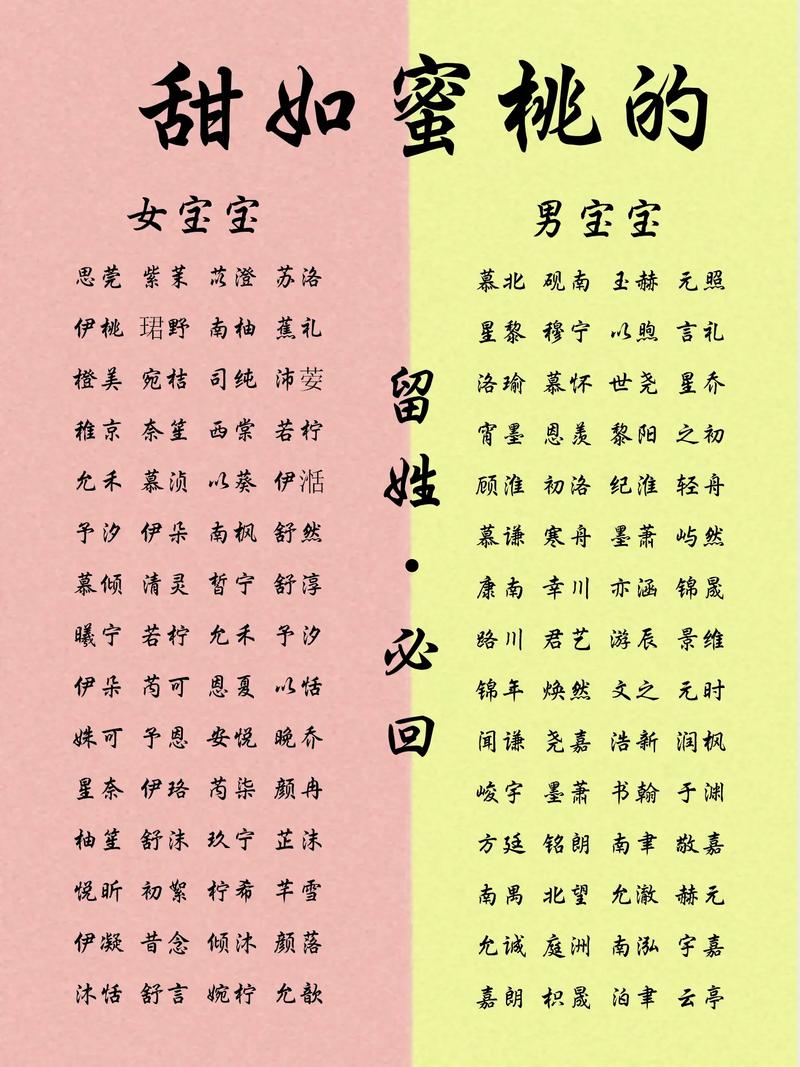 甜如蜜桃的
女宝宝
思莞 紫茉 苡澄 苏洛
伊桃 珺野 南柚 蕉礼
橙美 宛桔 司纯 沛荽
稚京 奈笙 西棠 若柠
允禾 慕浈 以葵 伊湉
予汐 伊朵 南枫 舒然
慕倾 清灵 皙宁 舒淳
曦宁 若柠 允禾 予汐
伊朵 芮可 恩夏 以恬
姝可 予恩 安悦 晚乔
星奈 伊珞 芮柒 颜冉
柚笙 舒沫 玖宁 芷沫
悦昕 初絮 柠希 芊雪
伊凝 昔念 倾沐 颜落
沐恬 舒言 婉柠 允歆
留姓·必回
男宝宝
慕北 砚南 玉赫 元照
星黎 穆宁 以煦 言礼
洛瑜 慕怀 世尧 星乔
宵墨 恩羡 黎阳 之初
顾淮 初洛 纪淮 轻舟
慕谦 寒舟 墨萧 屿然
康南 幸川 亦涵 锦晟
路川 君艺 游辰 景维
锦年 焕然 文之 元时
闻谦 尧嘉 浩新 润枫
峻宇 墨萧 书翰 于渊
方廷 铭朗 南聿 敬嘉
南禺 北望 允澈 赫元
允诚 庭洲 南泓 宇嘉
嘉朗 枳晟 泊聿 云亭